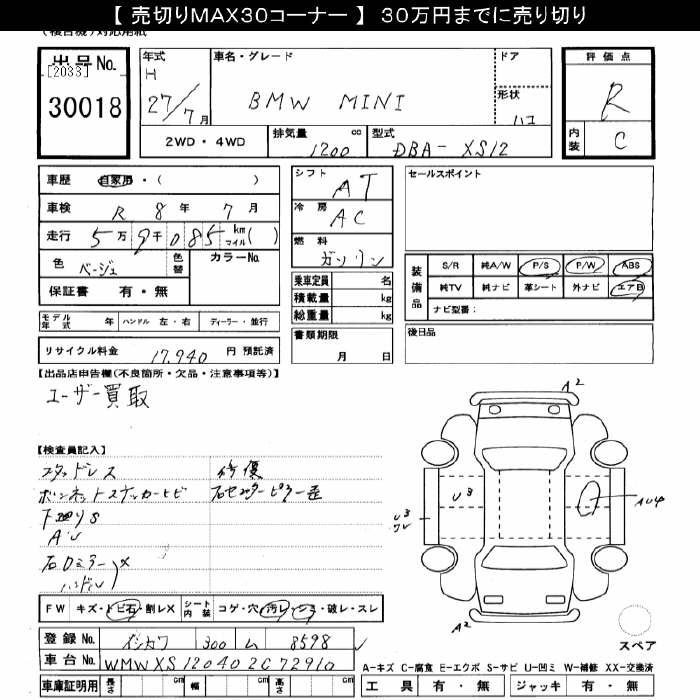 【 売切りMAX30コーナー 】 30万円までに売り切り
出品No.
[2033]
30018
年式
H
27/7月
車名・グレード
BMW MINI
ドア
形状
ハコ
2WD・4WD
排気量 cc
1200
型式
DBA-XS12
評価点
R
内装
C
車歴 自家用・( )
車検 R 8 年 7 月
走行 5万9千085 km マイル( )
色 ベージュ
色替
カラーNo.
保証書 有・無
モデル年式 年 ハンドル 左・右 ディーラー・並行
リサイクル料金 17,940 円 預託済
シフト
AT
冷房
AC
燃料
ガソリン
乗車定員 名
積載量 kg
総重量 kg
書類期限
月 日
セールスポイント
装備品
S/R 純A/W P/S P/W ABS
純TV 純ナビ 革シート 外ナビ エアB
ナビ型番:
後日品
【出品店申告欄(不良箇所・欠品・注意事項等)】
ユーザー買取
【検査員記入】
スタッドレス
修復
ボンネットステッカーヒビ
右センターピラー歪
下回りS
AU
右ロミラー
ハンドル
キズ
A2
U3
U3
AU4
A2
FW キズ・トビ石・割レX
シート内装 コゲ・穴・汚レ・シミ・破レ・スレ
登録No. イシカワ 300 ム 8598
車台No. WMWXS120402C72910
車庫証明用 長さ 幅 高さ
スペア
A-キズ C-腐食 E-エクボ S-サビ U-凹ミ W-補修 XX-交換済
工具 有・無 ジャッキ 有・無